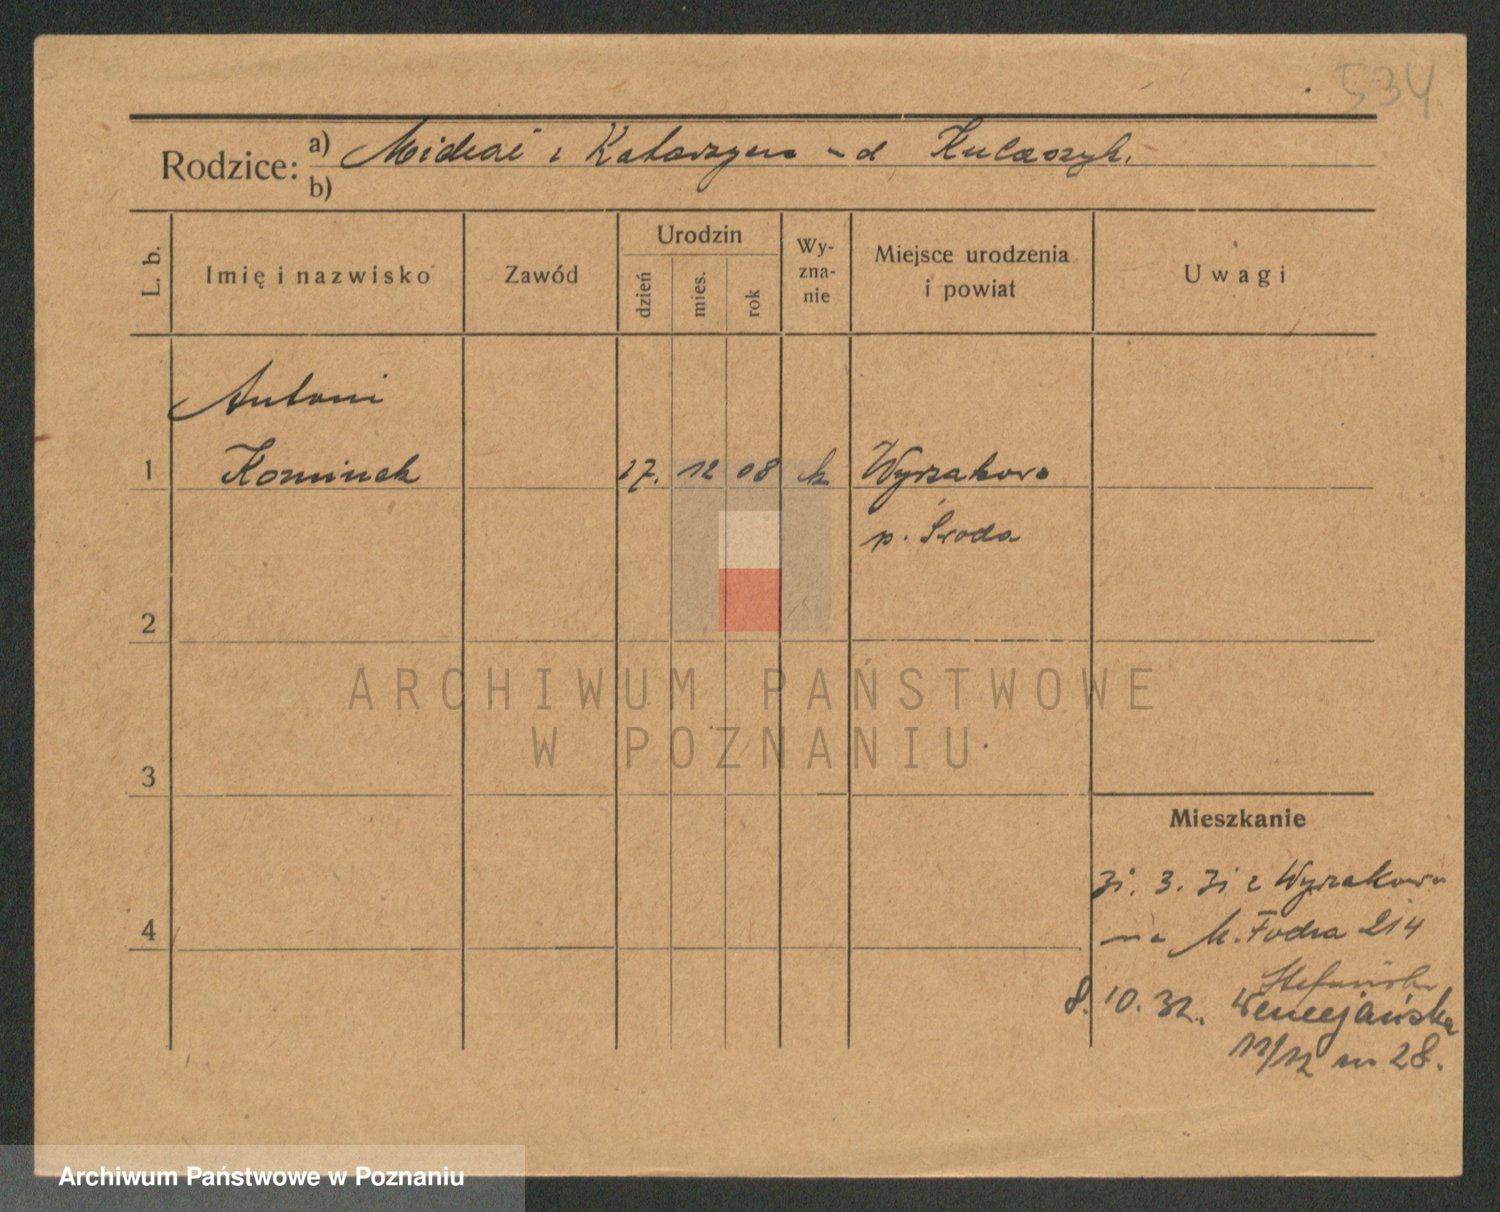 534
Rodzice: a) Michał i Katarzyna z d Kulaszyk.
b)
L. b.
Imię i nazwisko
Zawód
Urodzin
dzień
mies.
rok
Wy-
zna-
nie
Miejsce urodzenia
i powiat
Uwagi
Antoni
1 Kominek 27. 12 08 k Wyszakowo
p. Środa
2
ARCHIWUM PAŃSTWOWE
W POZNANIU
3
Mieszkanie
31. 3. 31 z Wyszakowo
4
na 214
8. 10. 32. Wenecjańska
11/12 m 28.
Archiwum Państwowe w Poznaniu